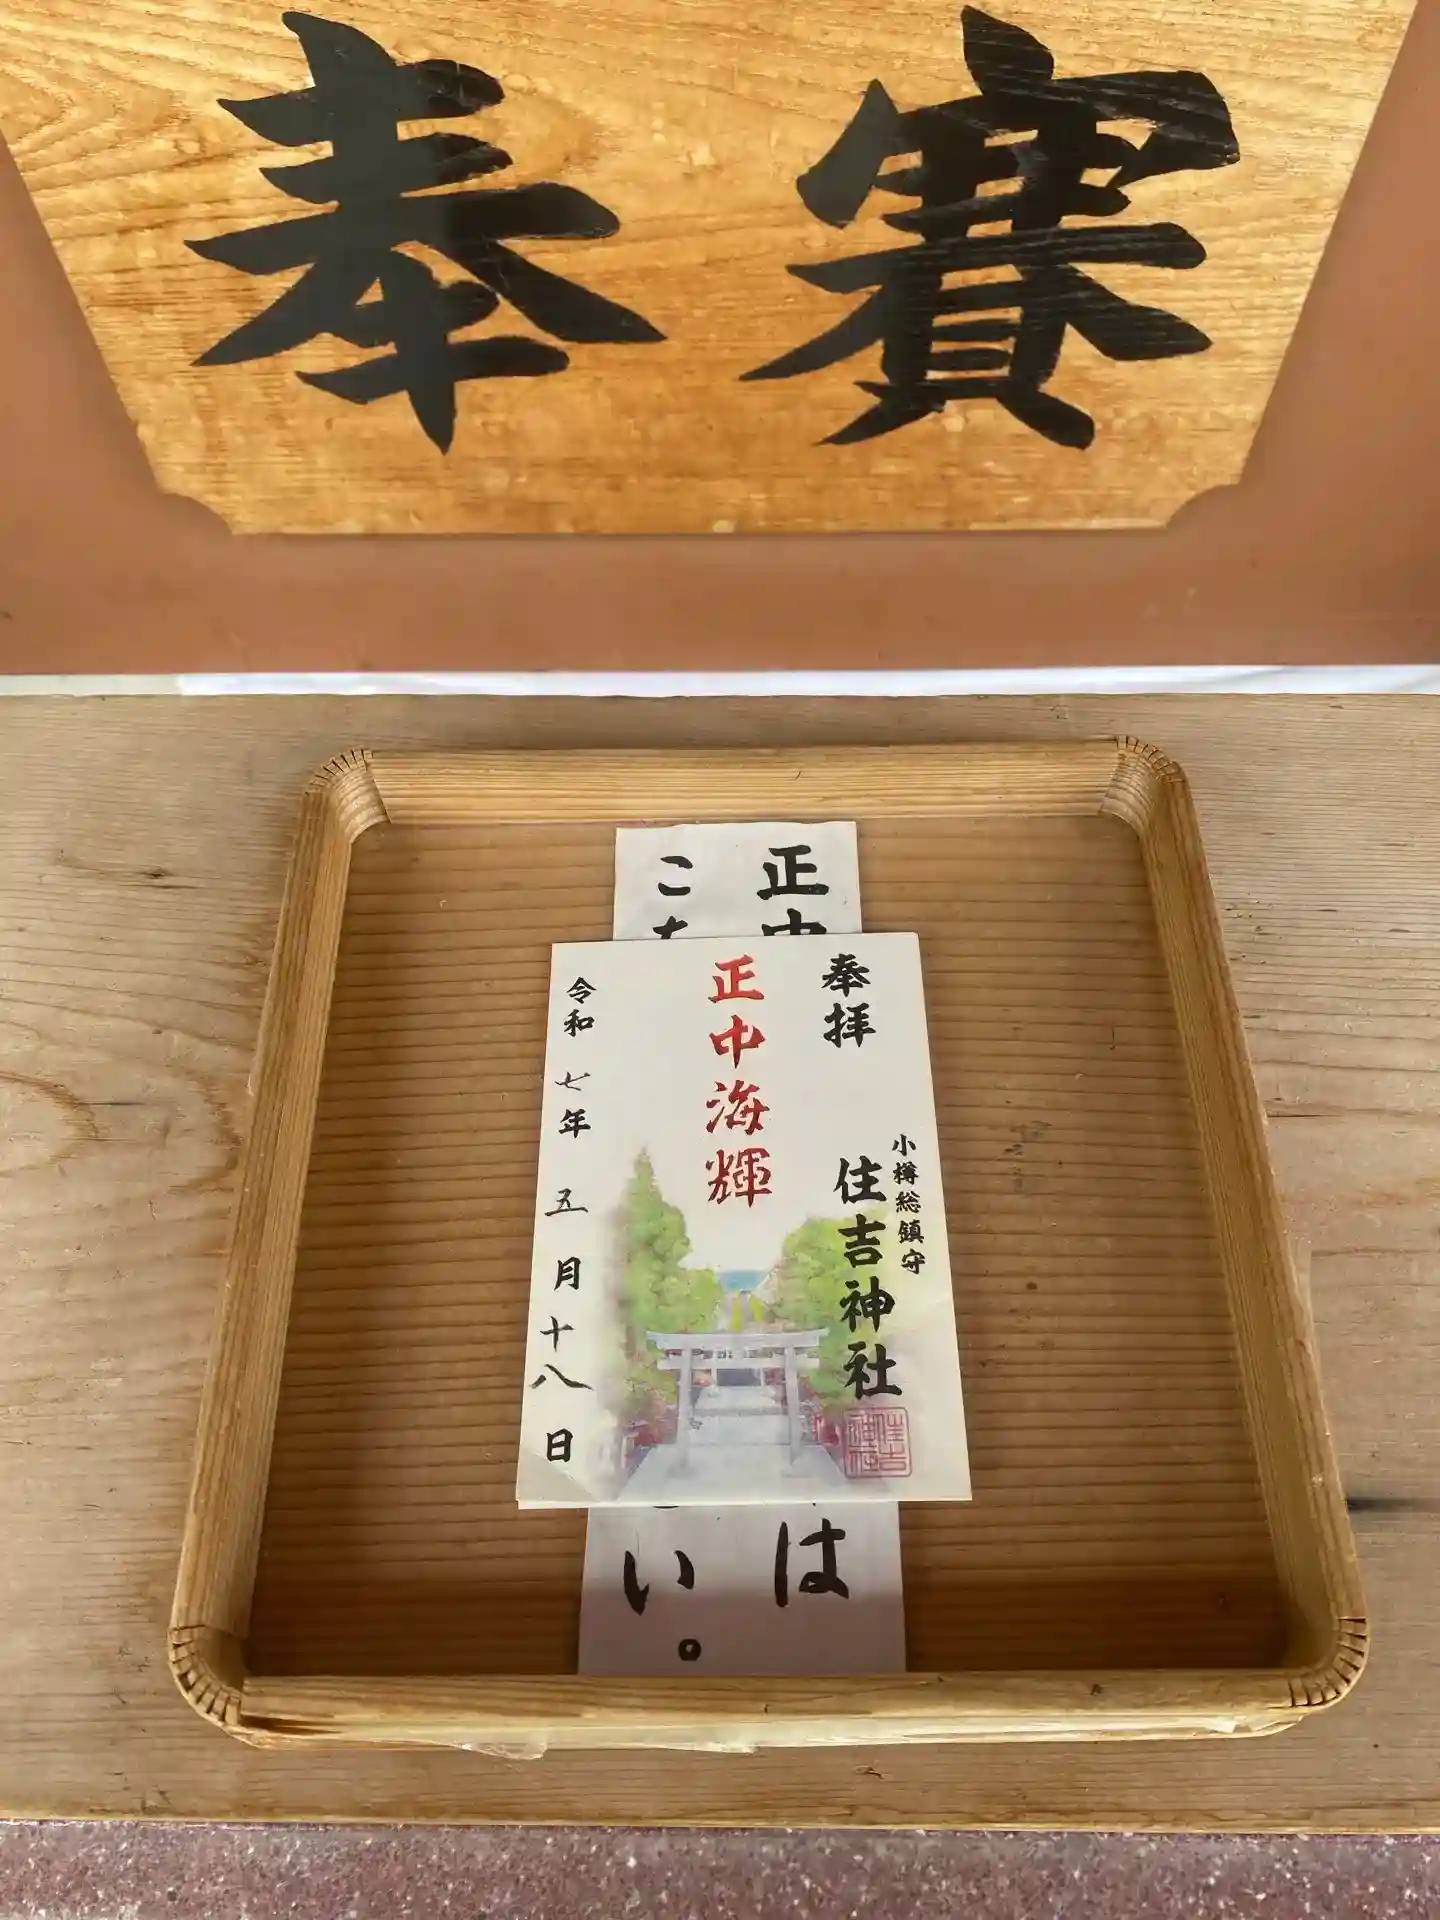 奉賽
正中
こち
奉拝
小樽総鎮守
住吉神社
正中海輝
令和七年五月十八日
住吉神社
は
い。